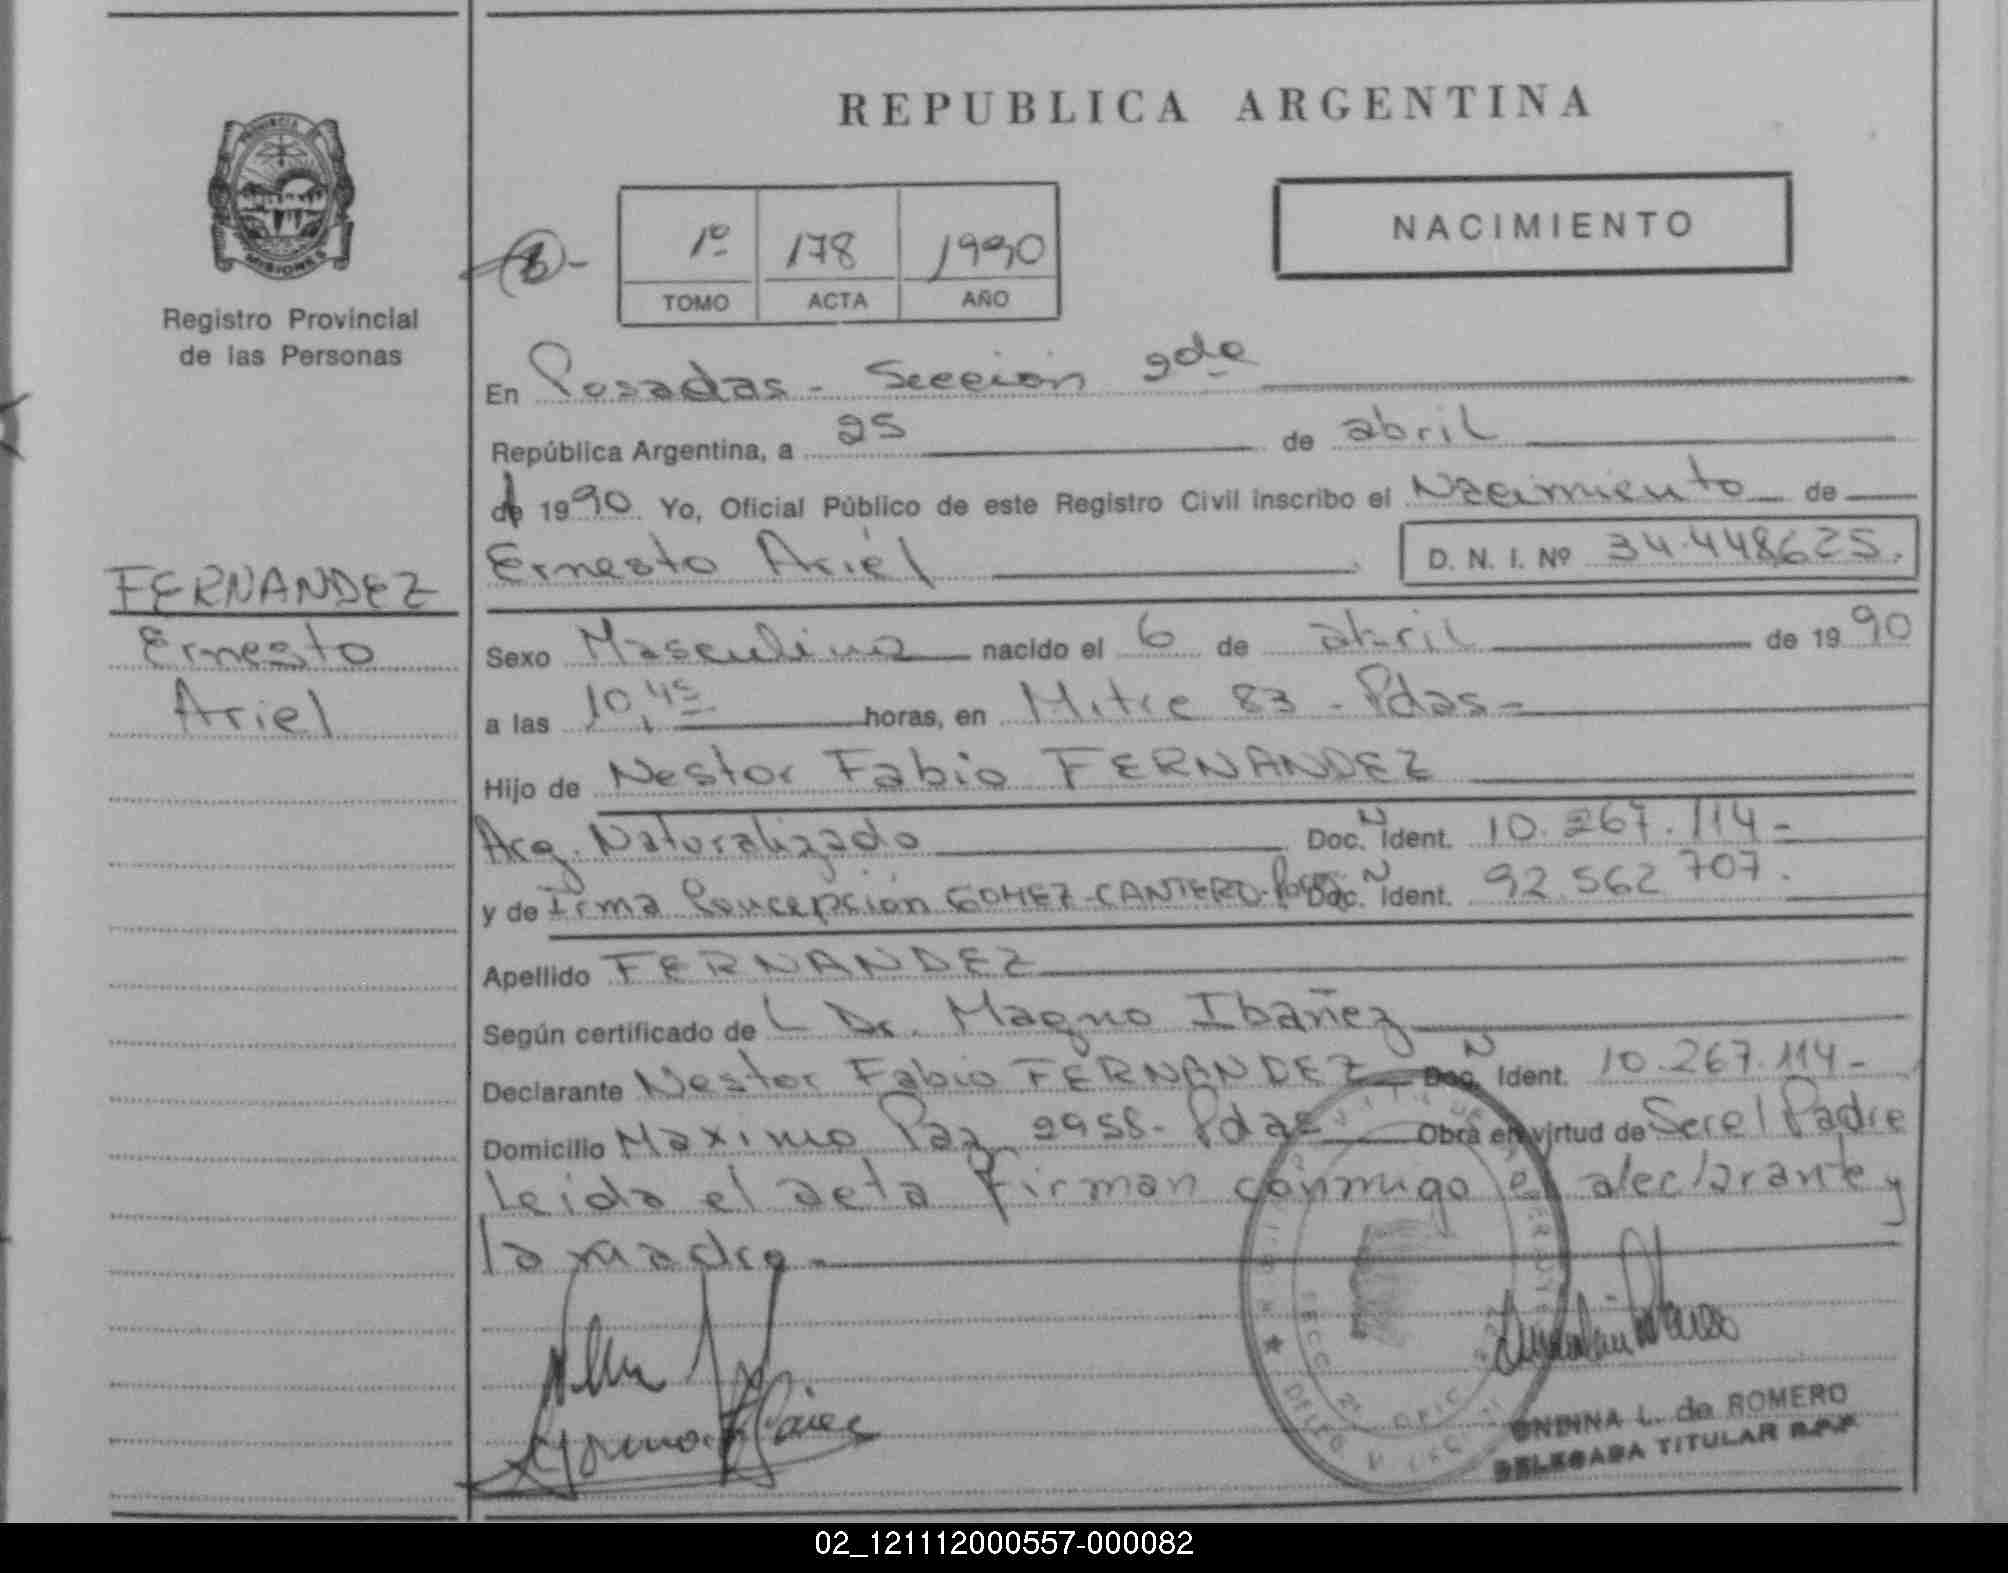 REPUBLICA ARGENTINA
PROVINCIA
MISIONES
Registro Provincial
de las Personas
1º 178 1990
TOMO ACTA AÑO
NACIMIENTO
En Posadas - Sección 2da
República Argentina, a 25 de abril
de 1990 Yo, Oficial Público de este Registro Civil inscribo el Nacimiento de
Ernesto Ariel D. N. I. Nº 34.448625.
FERNANDEZ
Ernesto
Ariel
Sexo Masculino nacido el 6 de abril de 1990
a las 10,45 horas, en Mitre 83 - Pdas -
Hijo de Nestor Fabio FERNANDEZ
Arg. Naturalizado Doc. N Ident. 10.267.114 -
y de Irma Concepción GOMEZ - CANTERO - Doc. N Ident. 92.562 707.
Apellido FERNANDEZ
Según certificado de L Dr. Magno Ibañez
Declarante Nestor Fabio FERNANDEZ Doc. N Ident. 10.267.114 -
Domicilio Maximo Paz 2958 - Pdas Obra en virtud de Ser el Padre
Leida el acta firman conmigo el declarante y
la madre -
ONDINA L. de ROMERO
DELEGADA TITULAR R.P.P
02_121112000557-000082